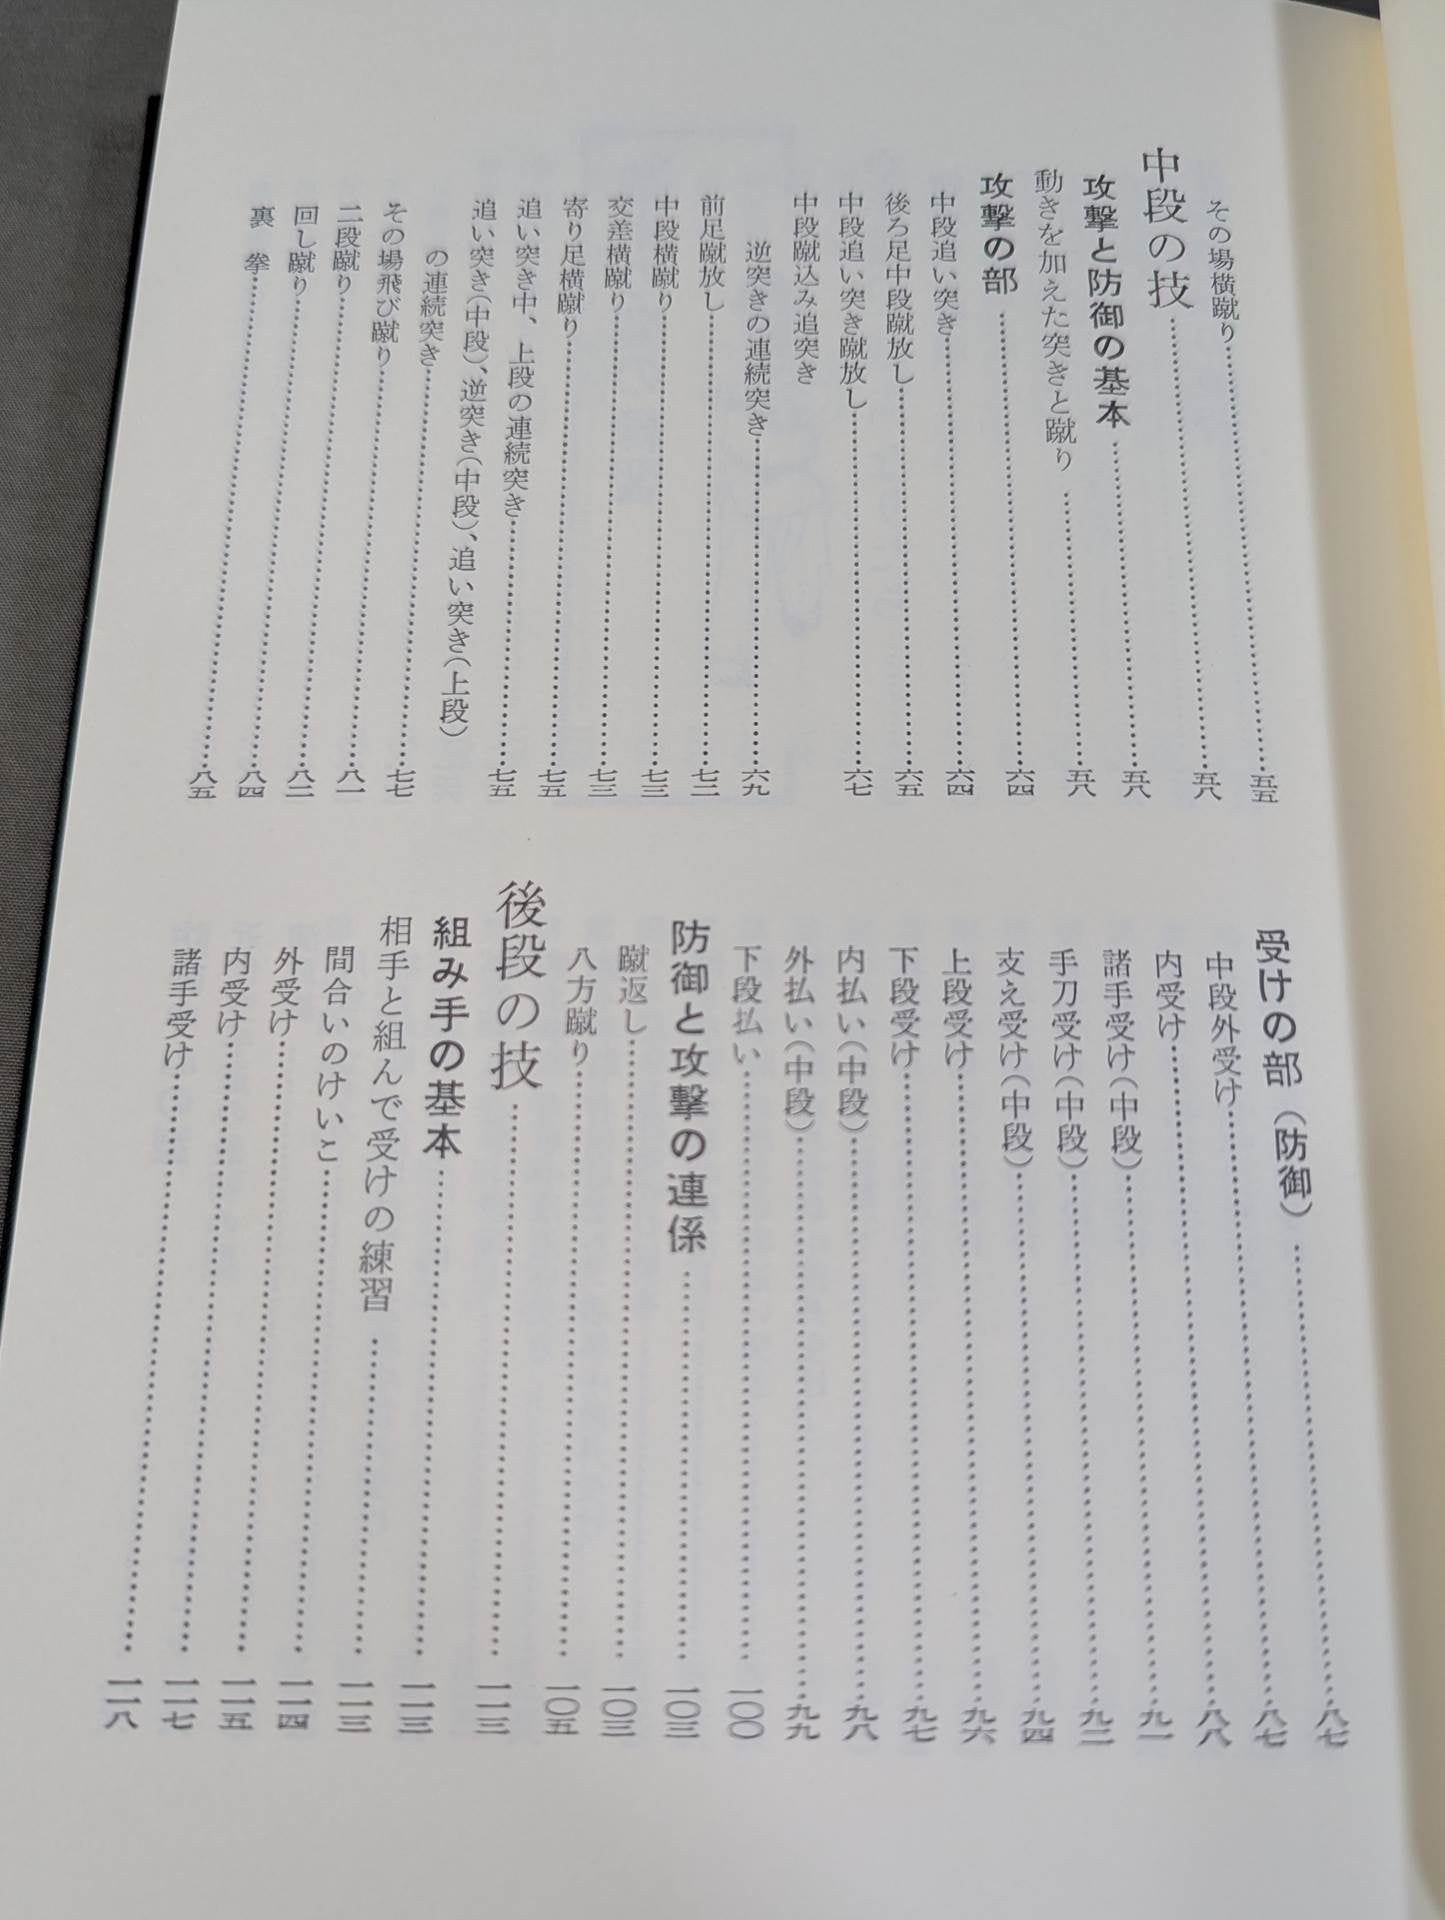 その場横蹴り……五五
中段の技……五八
攻撃と防御の基本……五八
動きを加えた突きと蹴り……五八
攻撃の部……六四
中段追い突き……六四
後ろ足中段蹴放し……六五
中段追い突き蹴放し……六七
中段蹴込み追突き
逆突きの連続突き……六九
前足蹴放し……七二
中段横蹴り……七三
交差横蹴り……七三
寄り足横蹴り……七五
追い突き中、上段の連続突き……七五
追い突き(中段)、逆突き(中段)、追い突き(上段)
の連続突き……七七
その場飛び蹴り……八一
二段蹴り……八二
回し蹴り……八四
裏 拳……八五
受けの部(防御)……八七
中段外受け……八七
内受け……八八
諸手受け(中段)……九一
手刀受け(中段)……九二
支え受け(中段)……九四
上段受け……九六
下段受け……九七
内払い(中段)……九八
外払い(中段)……九九
下段払い……一〇〇
防御と攻撃の連係……一〇三
蹴返し……一〇三
八方蹴り……一〇五
後段の技……一一三
組み手の基本……一一三
相手と組んで受けの練習……一一三
間合いのけいこ……一一四
外受け……一一五
内受け……一一七
諸手受け……一一八